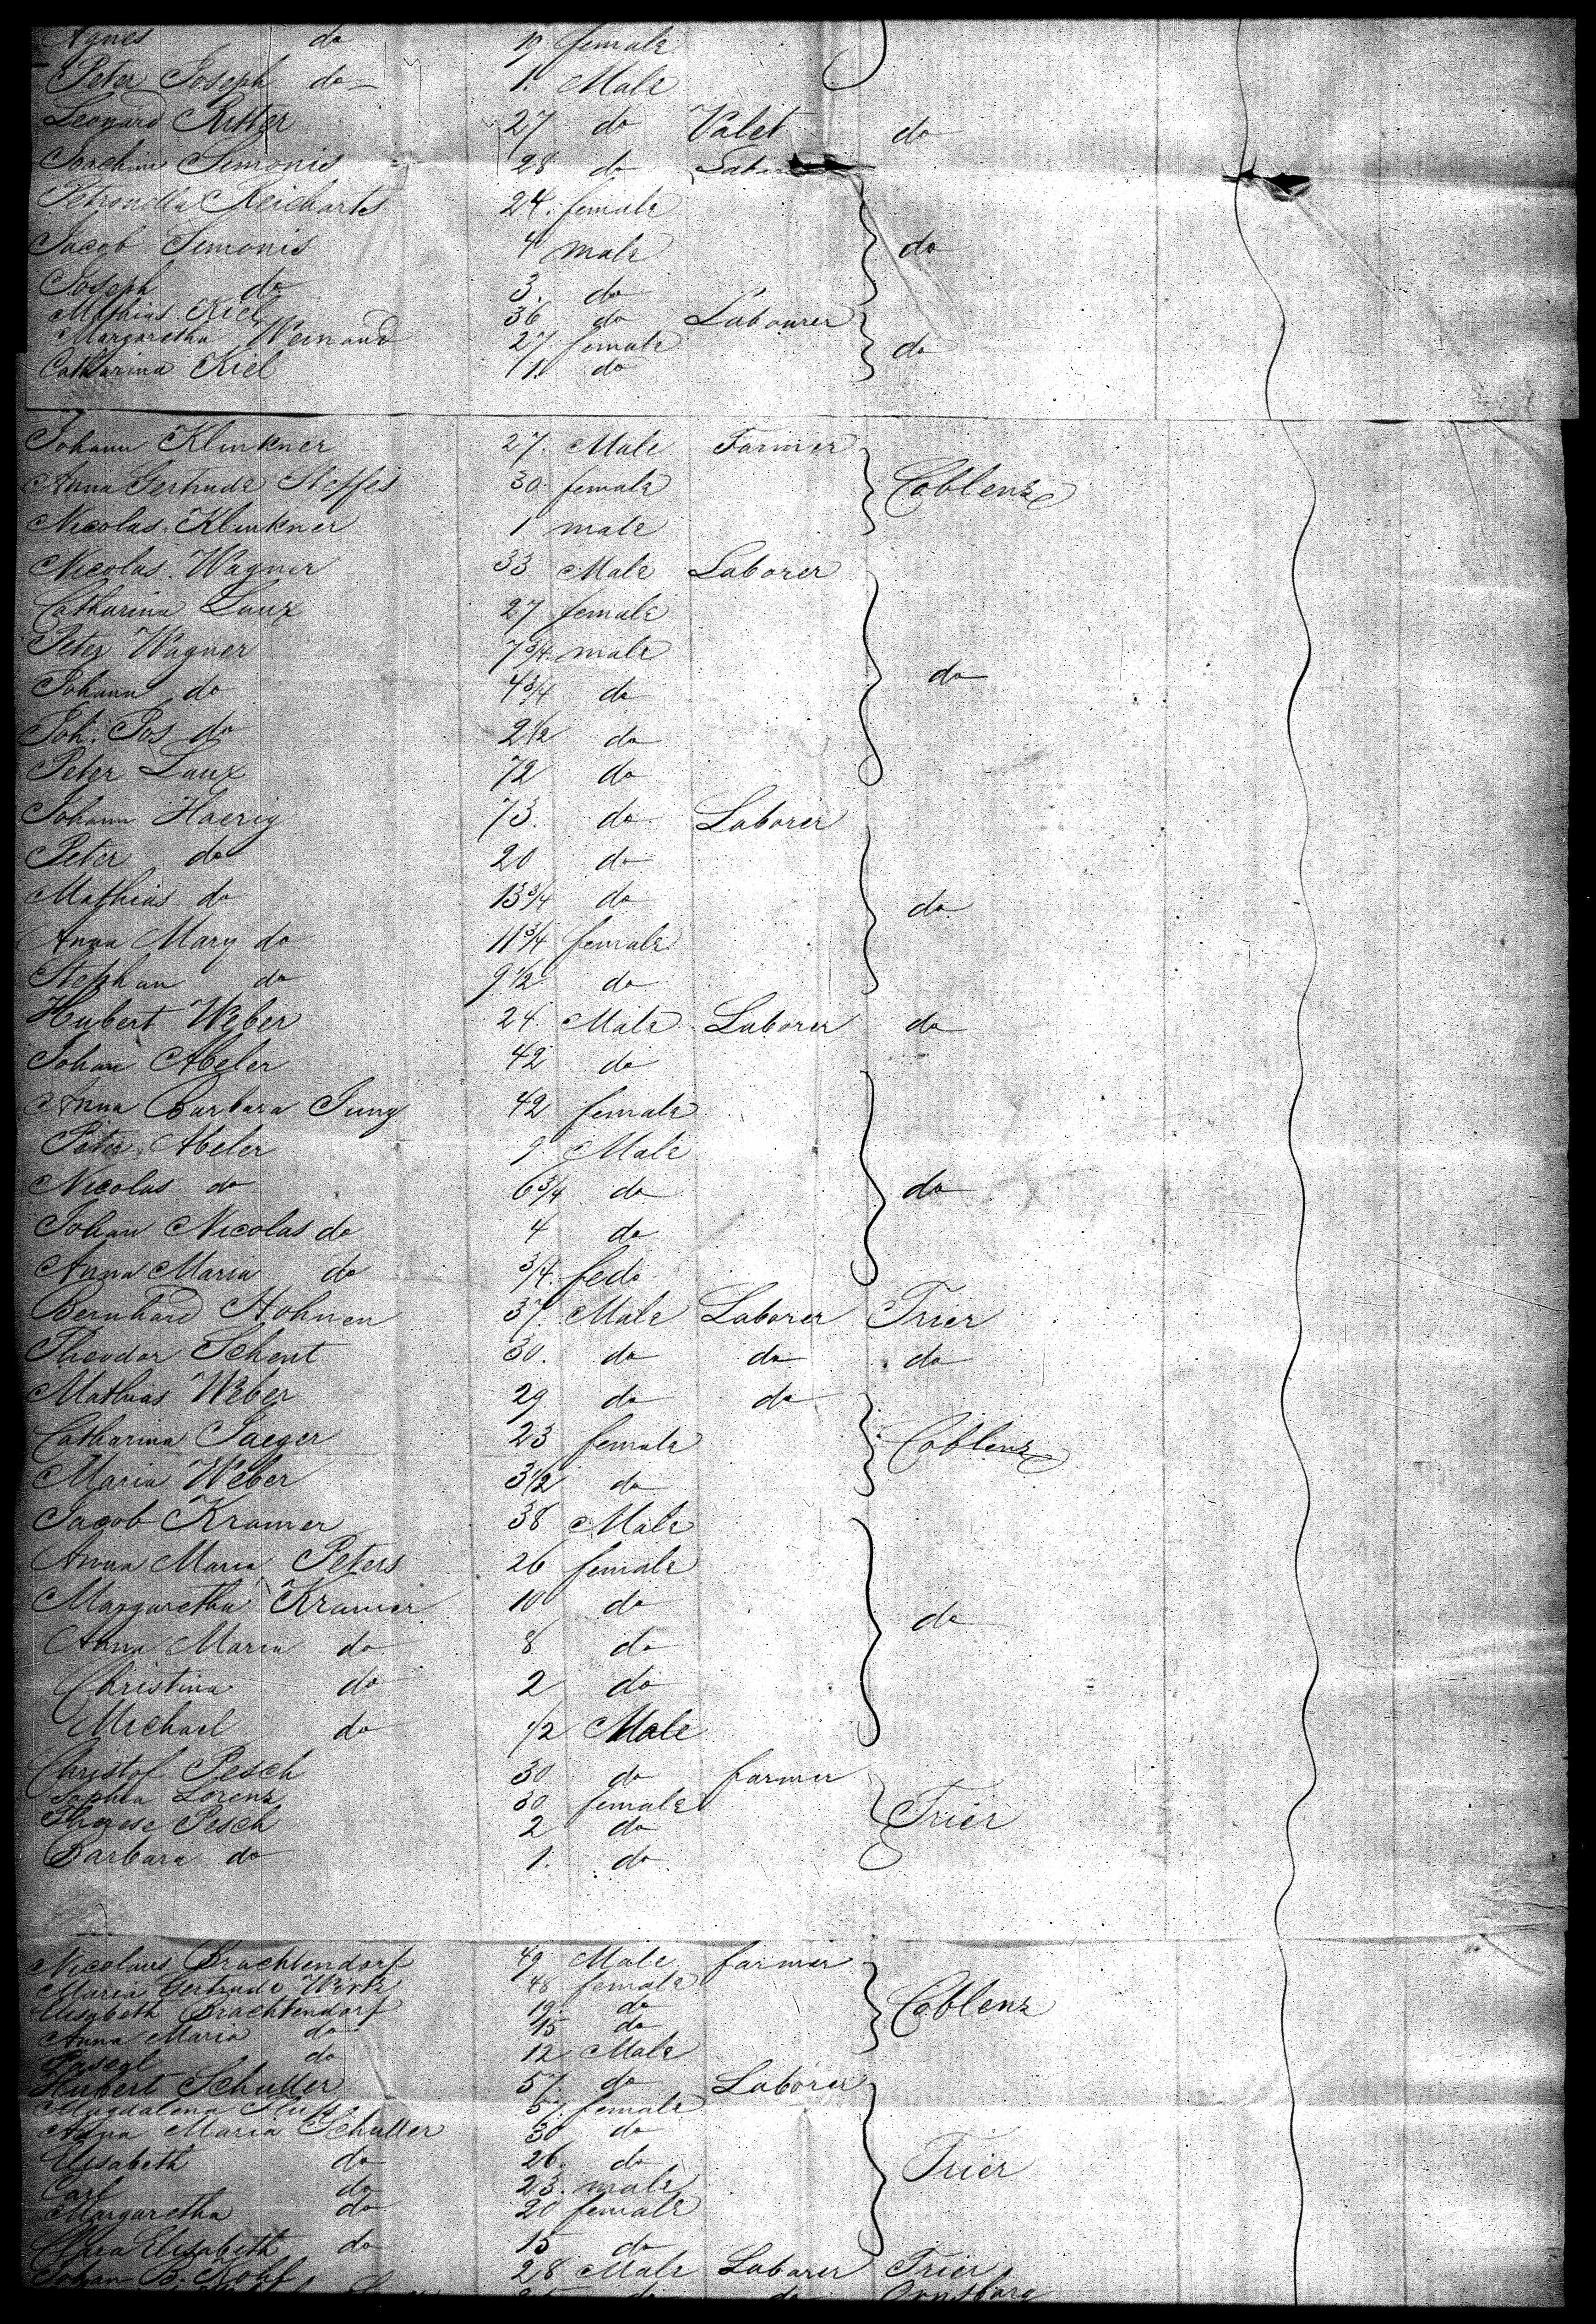 Agnes do 19 female
Peter Joseph do 1. Male
Leonard Ritter 27 do Valet do
Joachim Simonis 28 do
Petronella Reicharts 24. female
Jacob Simonis 4 male do
Joseph do 3. do
Mathias Kiel 36 do Labourer
Margaretha Weinand 27 female do
Catharina Kiel 1. do
Johann Klinkner 27. Male Farmer
Anna Gertrude Steffes 30 female Coblenz
Nicolas Klinkner 1 male
Nicolas Wagner 33 Male Laborer
Catharina Laux 27 female
Peter Wagner 7 3/4 male
Johann do 4 3/4 do do
Joh: Jos do 2 1/2 do
Peter Laux 72 do
Johann Haerig 73. do Laborer
Peter do 20 do
Mathias do 13 3/4 do do
Anna Mary do 11 3/4 female
Stephan do 9 1/2 do
Hubert Weber 24 Male Laborer do
Johan Abeler 42 do
Anna Barbara Jung 42 female
Peter Abeler 9 Male
Nicolas do 6 3/4 do do
Johan Nicolas do 4 do
Anna Maria do 3/4. fedo
Bernhard Hohnen 37. Male Laborer Trier
Theodor Schent 30. do do do
Mathias Weber 29 do do
Catharina Jaeger 23 female Coblenz
Maria Weber 3 1/2 do
Jacob Kramer 38 Male
Anna Maria Peters 26 female
Margaretha Kramer 10 do do
Anna Maria do 8 do
Christina do 2 do
Michael do 1/2 Male
Christof Pesch 30 do farmer
Sophia Lorenz 30 female Trier
Therese Pesch 2 do
Barbara do 1. do
Nicolaus Brachtendorf 49 Male farmer
Maria Gertrude 48 female
Elisabeth Brachtendorf 19. do Coblenz
Anna Maria do 15 do
do 12 Male
Hubert Schuller 57. do Laborer
Magdalena 57. female
Anna Maria Schuller 30 do
Elisabeth do 26. do Trier
Carl do 23. male
Margaretha do 20 female
Clara Elisabeth do 15 do
Johan B. Kohl 28 Male Laborer Trier
do do